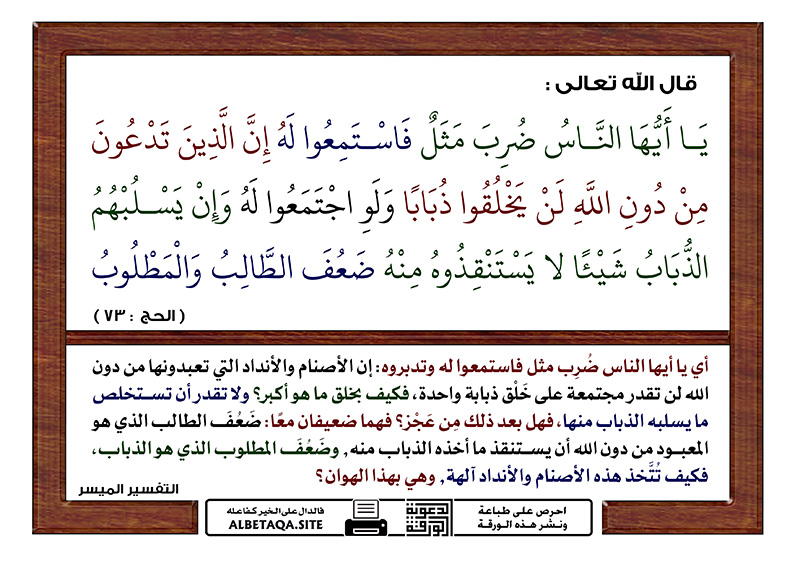 قال الله تعالى :
يَـا أَيُّهَا النَّـاسُ ضُرِبَ مَثَلٌ فَاسْـتَمِعُوا لَهُ إِنَّ الَّذِينَ تَدْعُونَ
مِنْ دُونِ اللَّهِ لَنْ يَخْلُقُوا ذُبَابًا وَلَوِ اجْتَمَعُوا لَهُ وَإِنْ يَسْـلُبْهُمُ
الذُّبَابُ شَيْئًا لا يَسْتَنْقِذُوهُ مِنْهُ ضَعُفَ الطَّالِبُ وَالْمَطْلُوبُ
( الحج : ٧٣ )
أي يا أيها الناس ضُرِب مثل فاستمعوا له وتدبروه: إن الأصنام والأنداد التي تعبدونها من دون
الله لن تقدر مجتمعة على خَلْق ذبابة واحدة، فكيف بخلق ما هو أكبر؟ ولا تقدر أن تستخلص
ما يسلبه الذباب منها، فهل بعد ذلك مِن عَجْز؟ فهما ضعيفان معًا: ضَعُفَ الطالب الذي هو
المعبود من دون الله أن يستنقذ ما أخذه الذباب منه, وضَعُفَ المطلوب الذي هو الذباب،
فكيف تُتَّخذ هذه الأصنام والأنداد آلهة, وهي بهذا الهوان؟
التفسير الميسر
احرص على طباعة
ونشر هذه الورقة
الدعوية
الورقة
فالدال على الخير كفاعله
ALBETAQA.SITE